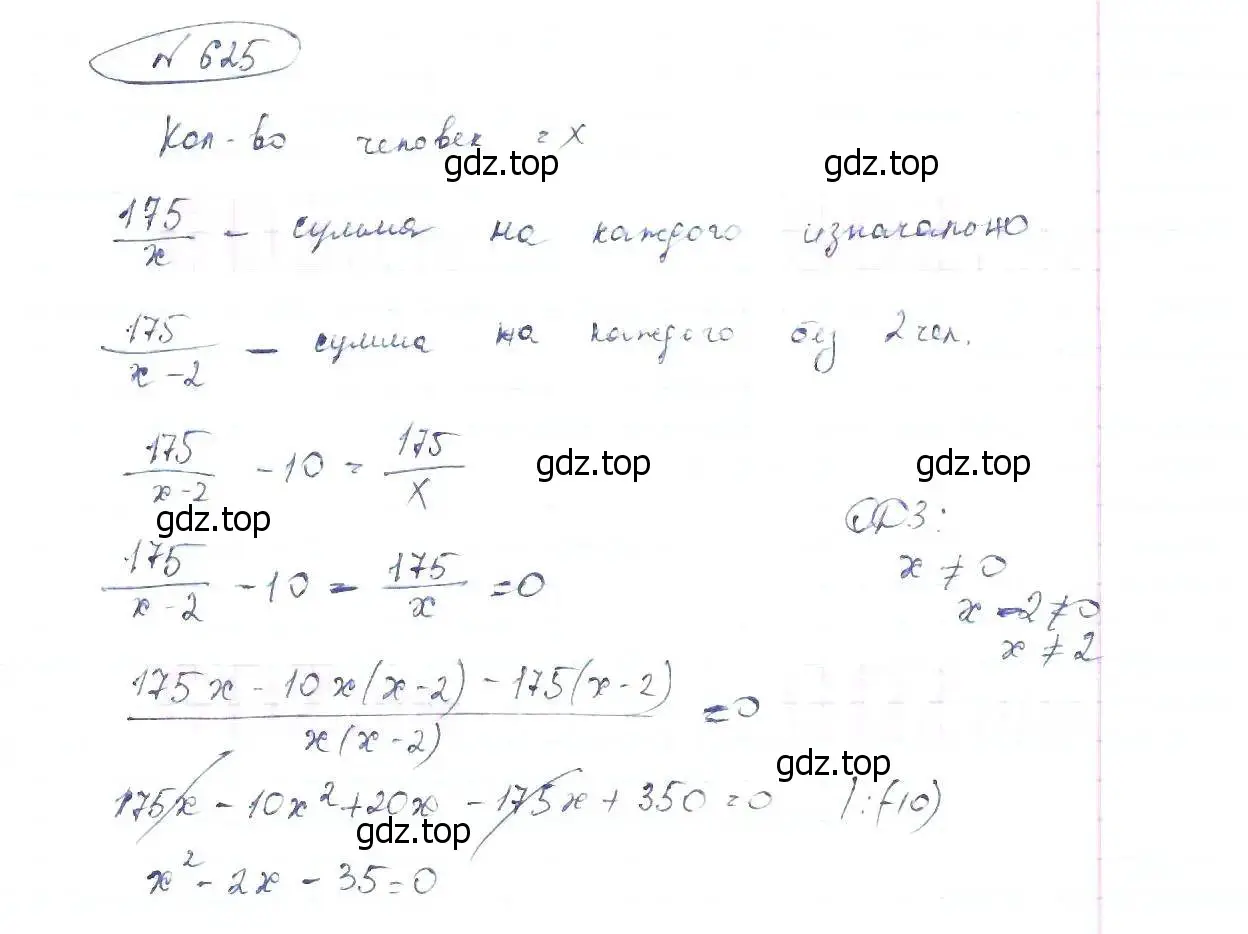 № 625
Кол-во человек = x
gdz.top gdz.top
175/x – сумма на каждого изначально
175/(x-2) – сумма на каждого без 2 чел.
175/(x-2) - 10 = 175/x
gdz.top gdz.top
gdz.top
ОДЗ:
x ≠ 0
x - 2 ≠ 0
x ≠ 2
175/(x-2) - 10 - 175/x = 0
(175x - 10x(x-2) - 175(x-2))/(x(x-2)) = 0
gdz.top
175x - 10x² + 20x - 175x + 350 = 0 |:(-10)
gdz.top
x² - 2x - 35 = 0